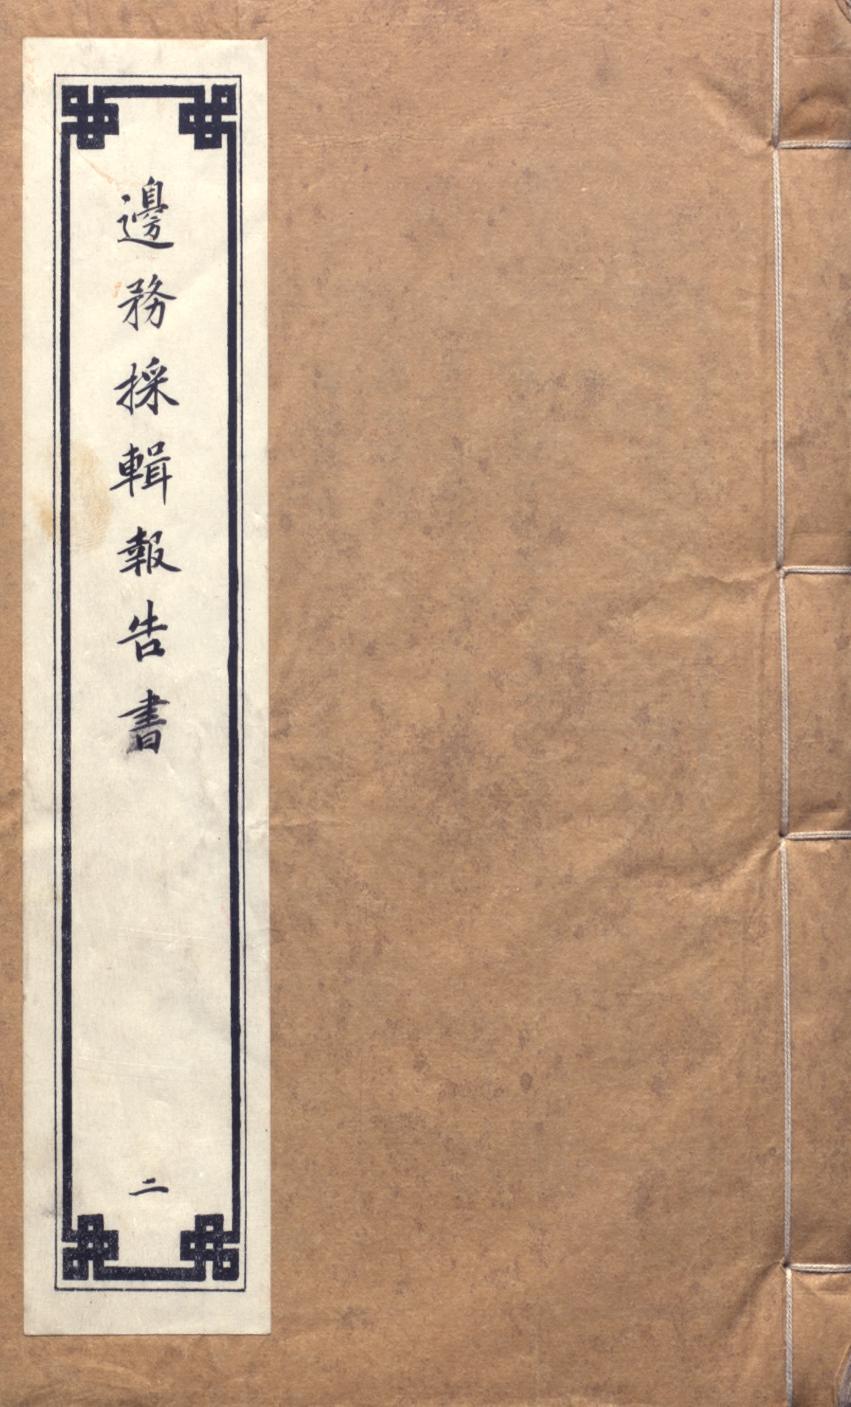 邊務採輯報告書
二